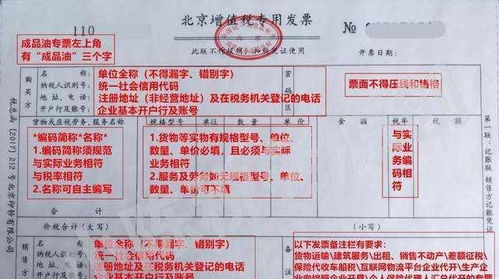 110
北京增值税专用发票
№
此联不得报销和扣税凭证使用
开票日期：
成品油专票左上角
有“成品油”三个字
购买方
名称：
纳税人识别号：
地址、电话：
开户行及账号：
单位全称（不得漏字、错别字）
统一社会信用代码
注册地址（非经营地址）及在税务机关登记的电话
企业基本开户行及账号
密码区
票面不得压线和错格
货物或应税劳务、服务名称
规格型号
单位
数量
单价
金额
税率
税额
*编码简称*名称*
1.编码简称须规范
与实际业务相符
与税率相符
2.名称可自主编写
1.货物等实物有规格型号、单位、
数量、单价必填，且必须与实际
业务相符
2.服务及劳务如无规格型号、单位、
数量、单价可不填
与实际业务编码相符
价税合计（大写）
（小写）
单位全称（不得漏字、错别字）
统一社会信用代码
以下发票备注栏有要求：
货物运输\建筑服务\出租、销售不动产\差额征税\
保险代收车船税\互联网物流平台企业代开\生产企
税总函〔2017〕212号北京印钞有限公司
第一联：记账联 销售方记账凭证